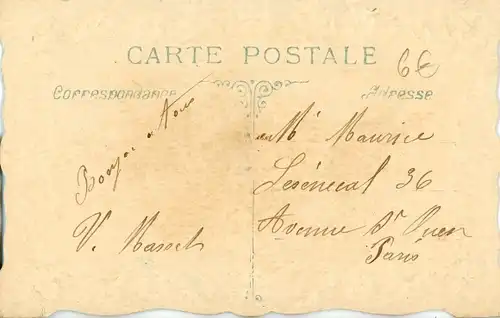 CARTE POSTALE
6€
Correspondance
Adresse
Bonjour a tous
V. Massel
Mr Maurice
Lesénécal 36
Avenue St Ouen
Paris